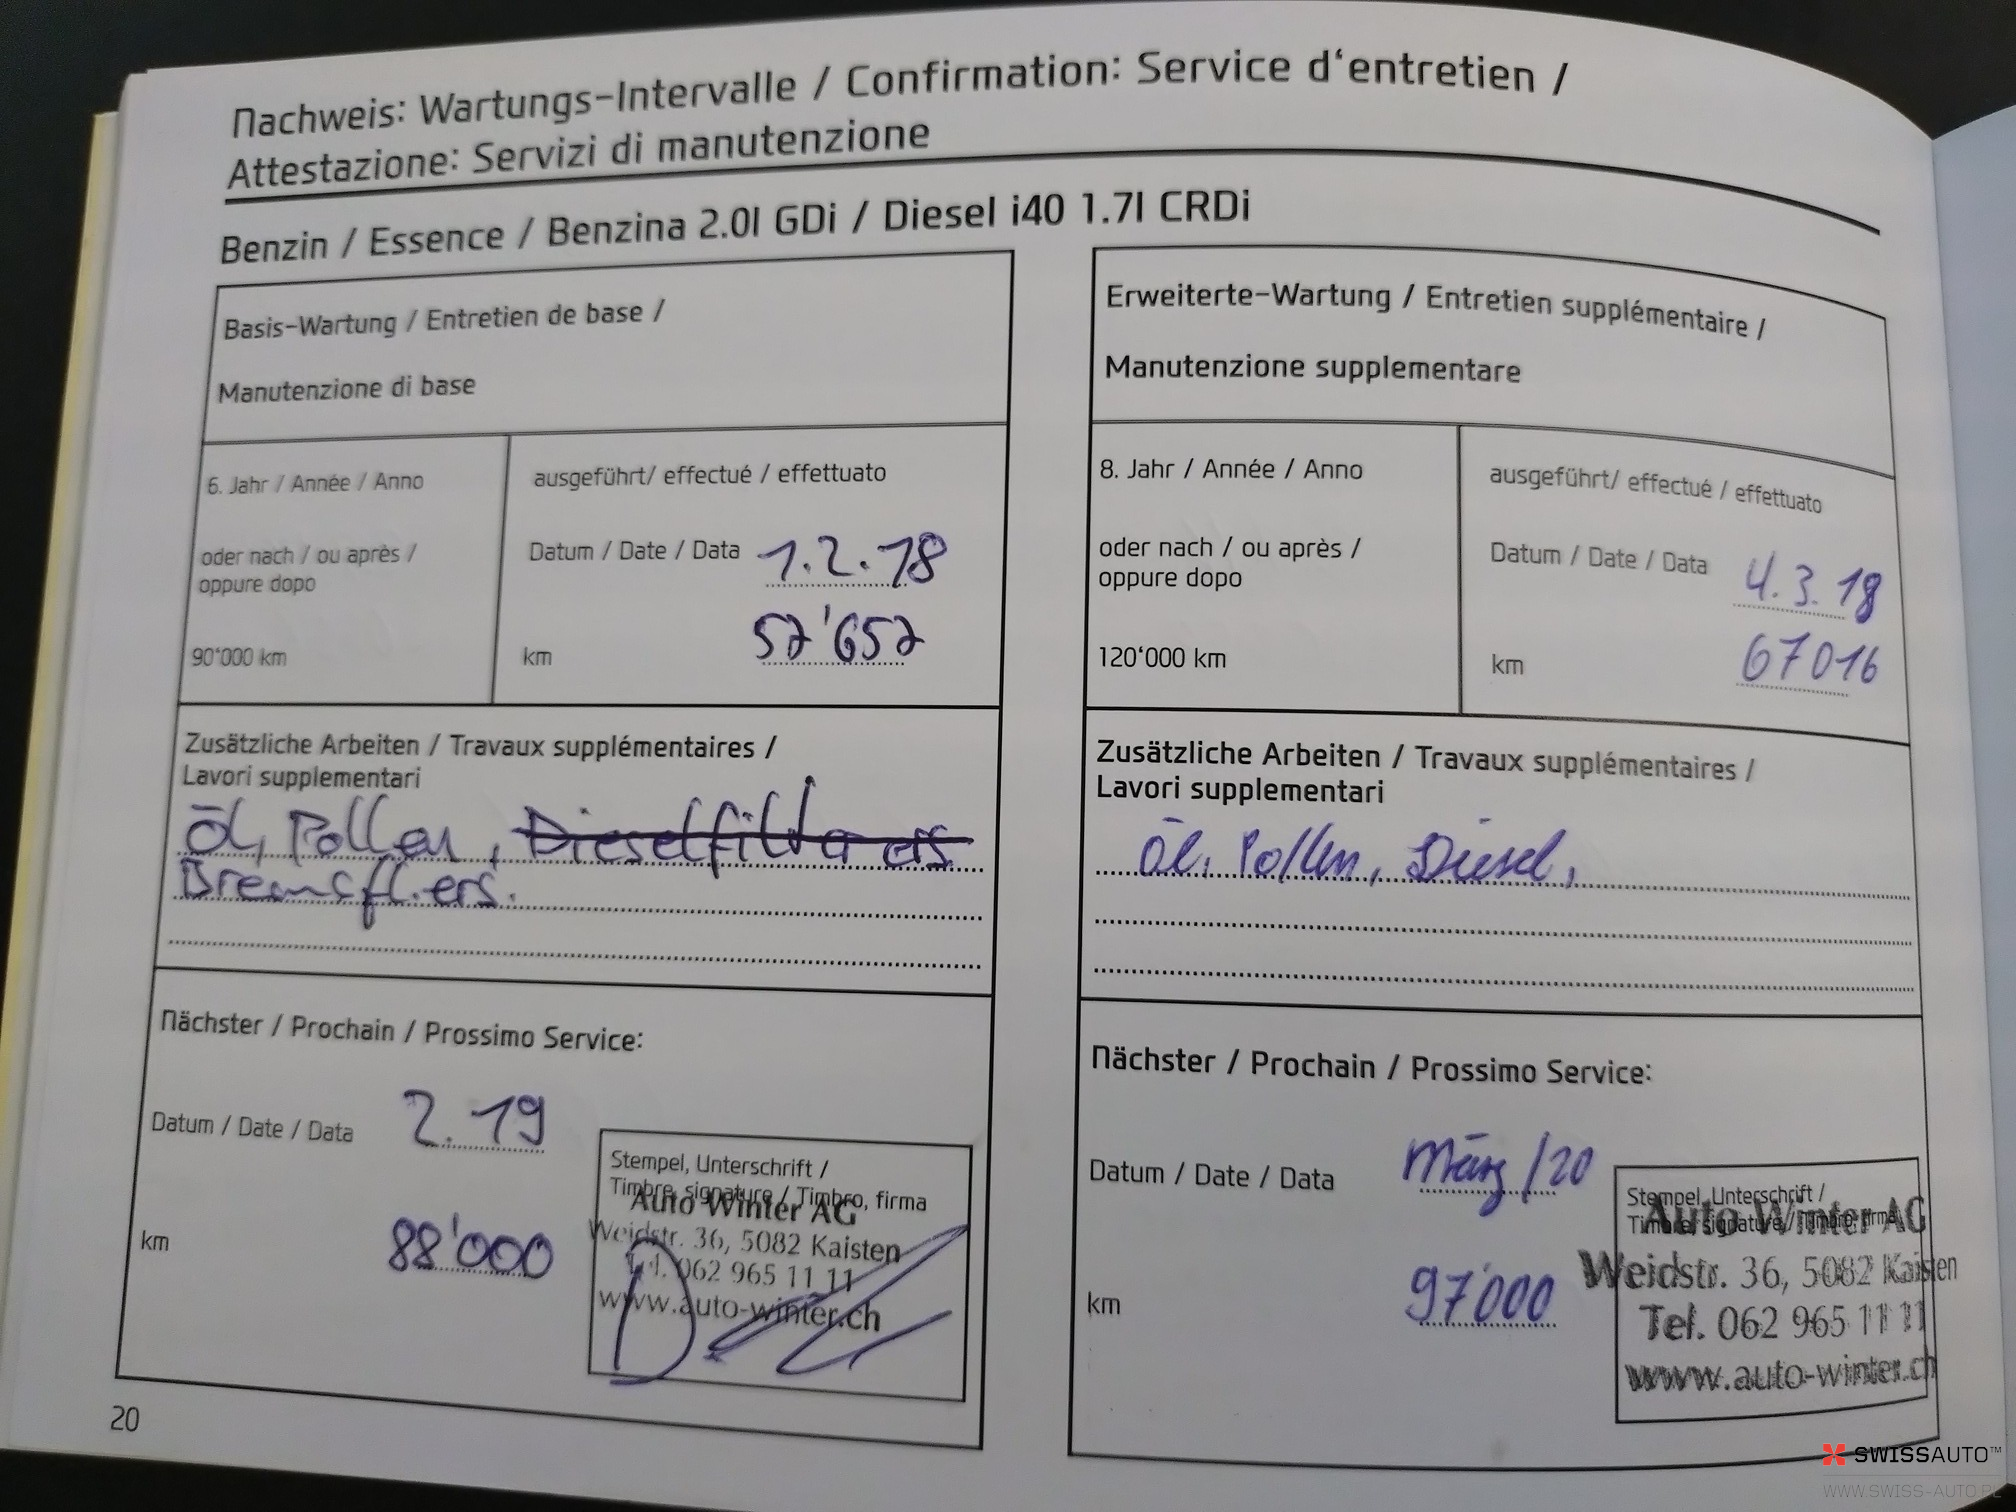 Nachweis: Wartungs-Intervalle / Confirmation: Service d'entretien /
Attestazione: Servizi di manutenzione
Benzin / Essence / Benzina 2.0l GDi / Diesel i40 1.7l CRDi
Basis-Wartung / Entretien de base /
Manutenzione di base
6. Jahr / Année / Anno
oder nach / ou après /
oppure dopo
90'000 km
ausgeführt/ effectué / effettuato
Datum / Date / Data 1.2.18
km 57'657
Zusätzliche Arbeiten / Travaux supplémentaires /
Lavori supplementari
Öl, Pollen, Dieselfilter ers.
Bremsfl. ers.
Nächster / Prochain / Prossimo Service:
Datum / Date / Data 2.19
km 88'000
Stempel, Unterschrift /
Timbre, signature / Timbro, firma
Auto Winter AG
Weidstr. 36, 5082 Kaisten
Tel. 062 965 11 11
www.auto-winter.ch
20
Erweiterte-Wartung / Entretien supplémentaire /
Manutenzione supplementare
8. Jahr / Année / Anno
oder nach / ou après /
oppure dopo
120'000 km
ausgeführt/ effectué / effettuato
Datum / Date / Data 4.3.19
km 67016
Zusätzliche Arbeiten / Travaux supplémentaires /
Lavori supplementari
Öl, Pollen, Diesel,
Nächster / Prochain / Prossimo Service:
Datum / Date / Data März/20
km 97'000
Stempel, Unterschrift /
Timbre, signature / Timbro, firma
Auto Winter AG
Weidstr. 36, 5082 Kaisten
Tel. 062 965 11 11
www.auto-winter.ch
SWISSAUTO™
WWW.SWISS-AUTO.PL